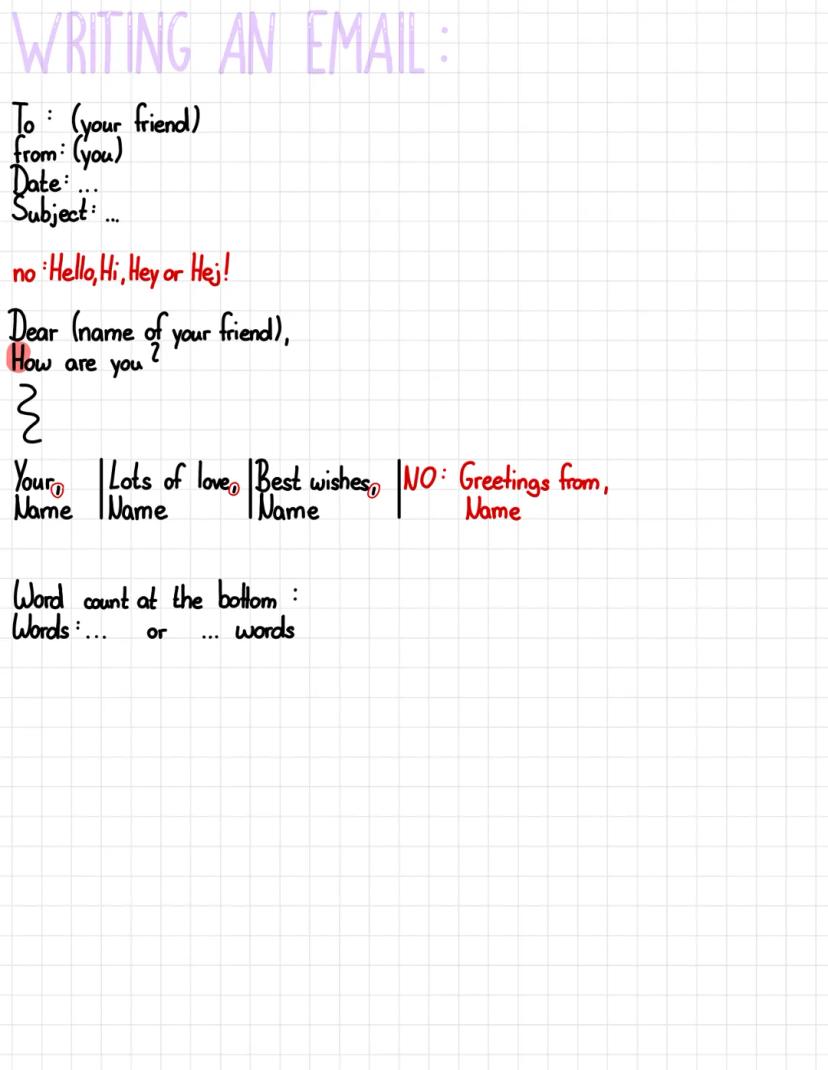 WRITING AN EMAIL:
To: (your friend)
from: (you)
Date: ...
Subject: ...
no: Hello, Hi, Hey or Hej!
Dear (name of your friend),
How are you?
Your, | Lots of love, | Best wishes, | NO: Greetings from,
Name | Name | Name | Name
Word count at the bottom:
Words: ... or ... words